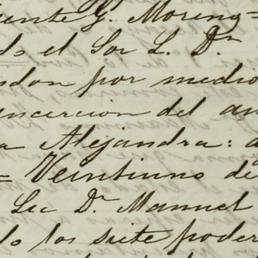 ente G. Moreng=
do el Sor L. Dn
don por medio
incercion del an
a Alejandra: a
= Veintiuno de
Lic Dn Manuel
do los siete poder